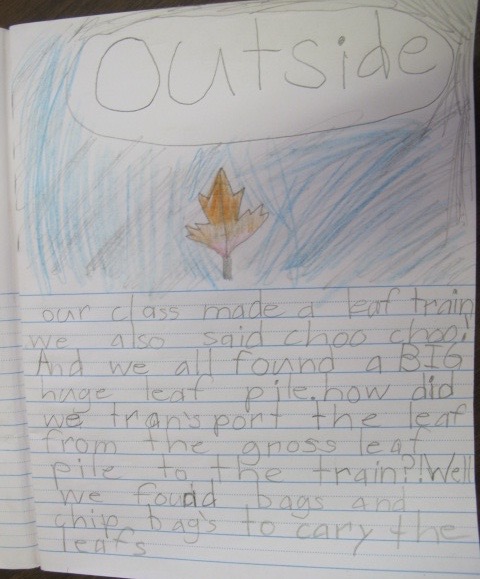 Outside
our class made a leaf train
we also said choo choo!
And we all found a BIG
huge leaf pile. how did
we transport the leaf
from the gross leaf
pile to the train?! Well
we foudd bags and
chip bags to cary the
leafs